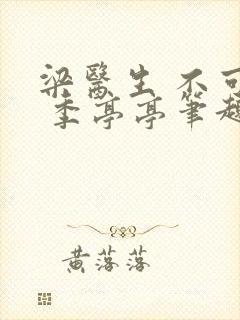 梁醫生 不可
季亭亭筆趣
黃落落